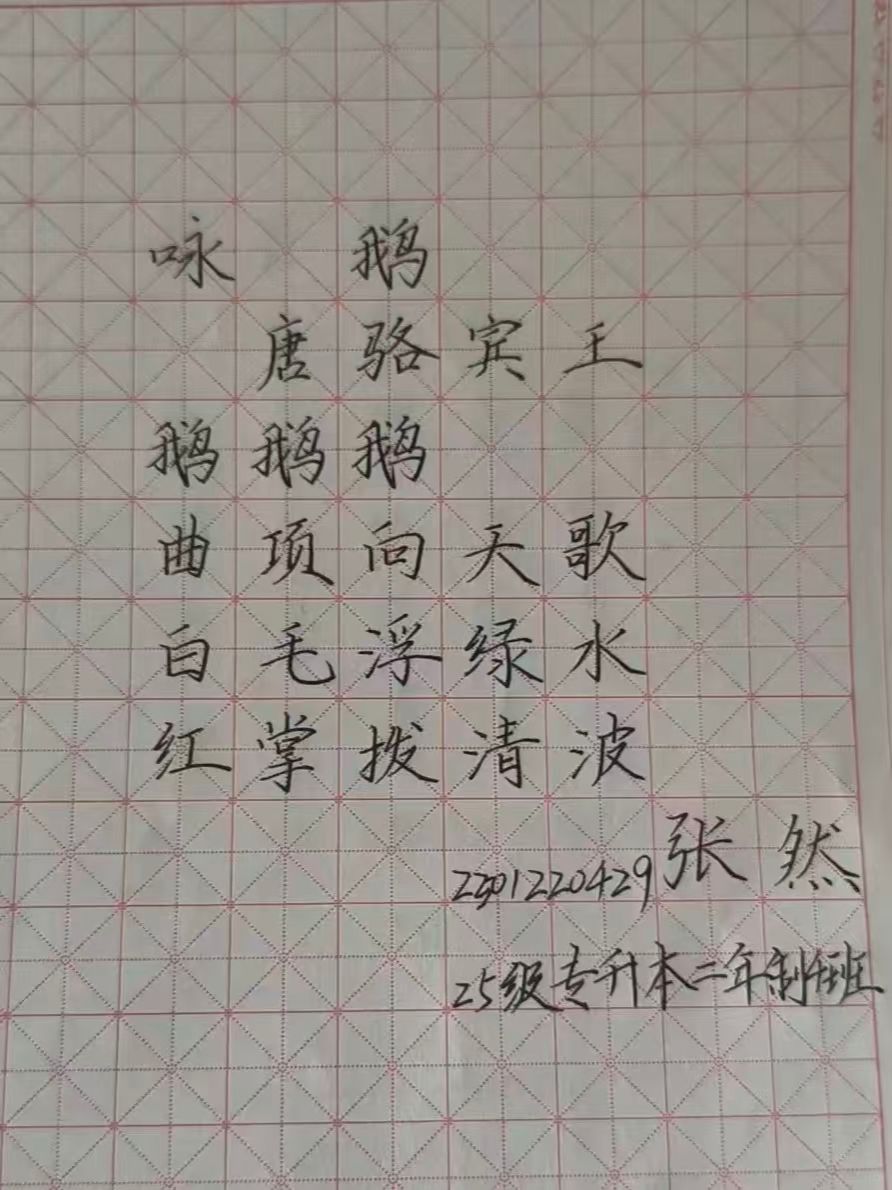 咏 鹅
唐骆宾王
鹅鹅鹅
曲项向天歌
白毛浮绿水
红掌拨清波
2301220429张然
25级专升本二年制班